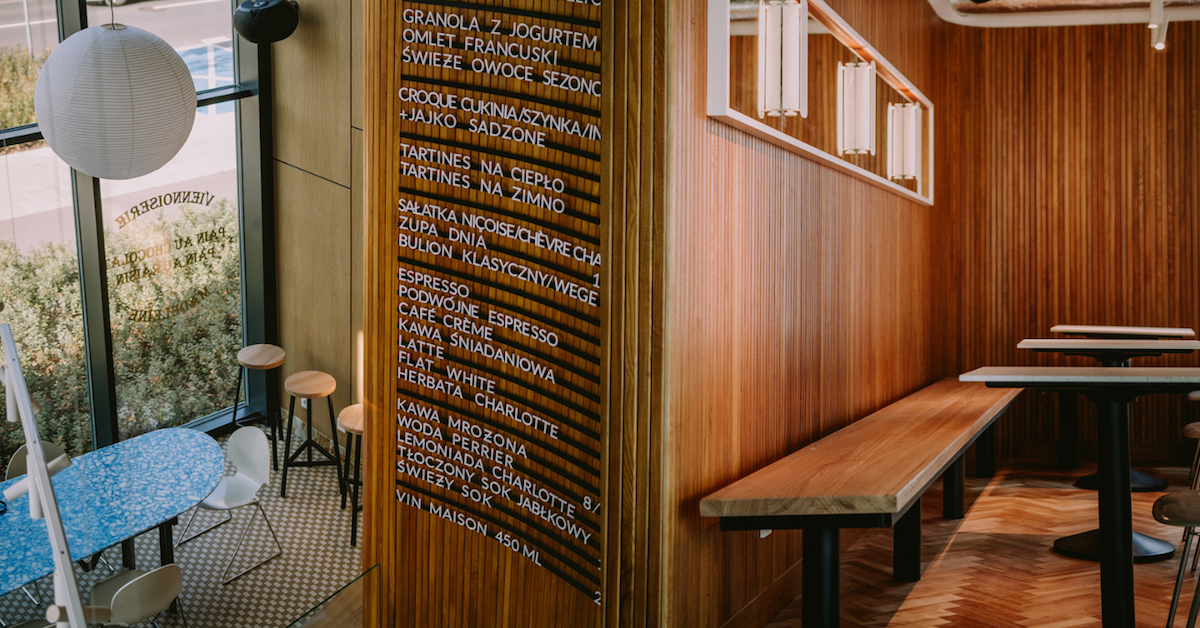 VIENNOISERIE
PAIN AU CHOCOLA
PAIN A RAISIN
GRANOLA Z JOGURTEM
OMLET FRANCUSKI
ŚWIEŻE OWOCE SEZONO
CROQUE CUKINIA/SZYNKA/IN
+JAJKO SADZONE
TARTINES NA CIEPŁO
TARTINES NA ZIMNO
SAŁATKA NIÇOISE/CHÈVRE CHA
ZUPA DNIA 1
BULION KLASYCZNY/WEGE
ESPRESSO
PODWÓJNE ESPRESSO
CAFÉ CRÈME
KAWA ŚNIADANIOWA
LATTE
FLAT WHITE
HERBATA CHARLOTTE
KAWA MROŻONA
WODA PERRIER
LEMONIADA CHARLOTTE 8/
TŁOCZONY SOK JABŁKOWY
ŚWIEŻY SOK
VIN MAISON 450 ML